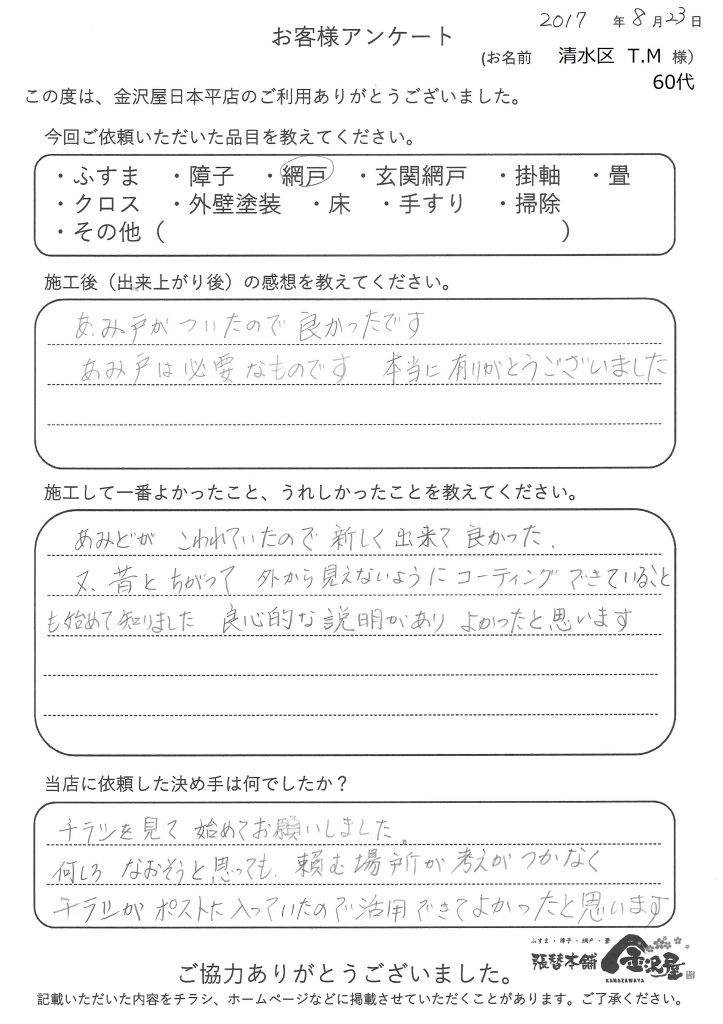 2017 年 8 月 23 日
お客様アンケート
(お名前 清水区 T.M 様)
60代
この度は、金沢屋日本平店のご利用ありがとうございました。
今回ご依頼いただいた品目を教えてください。
・ふすま ・障子 ・網戸 ・玄関網戸 ・掛軸 ・畳
・クロス ・外壁塗装 ・床 ・手すり ・掃除
・その他 ( )
施工後（出来上がり後）の感想を教えてください。
あみ戸がついたので 良かったです
あみ戸は必要なものです 本当に有りがとうございました
施工して一番よかったこと、うれしかったことを教えてください。
あみどが こわれていたので 新しく出来て 良かった.
又、昔と ちがって 外から見えないように コーティング できていること
も始めて知りました 良心的な説明があり よかったと思います
当店に依頼した決め手は何でしたか？
チラシを見て 始めてお願いしました。
何しろ なおそうと思っても、頼む場所が 考えが つかなく
チラシが ポストに入っていたので活用できてよかったと思います
ふすま・障子・網戸・畳
張替本舗 金沢屋
KANAZAWAYA
ご協力ありがとうございました。
記載いただいた内容をチラシ、ホームページなどに掲載させていただくことがあります。ご了承ください。